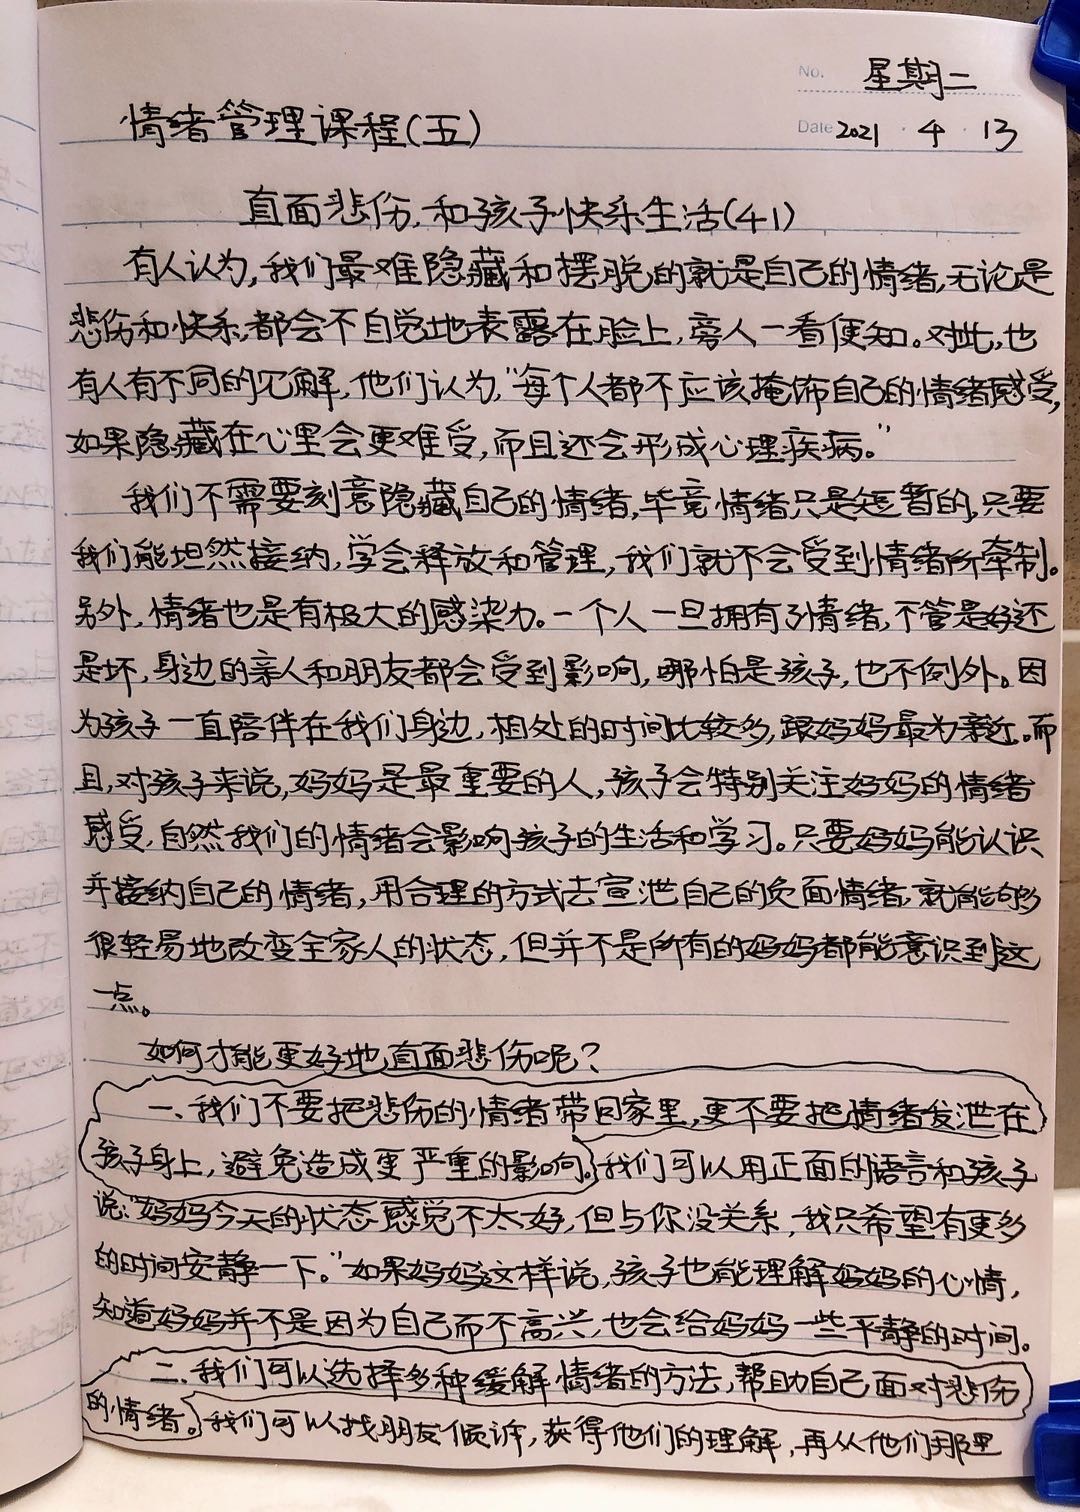 No. 星期二
情绪管理课程(五)
Date 2021 · 4 · 13
直面悲伤,和孩子快乐生活(41)
有人认为,我们最难隐藏和摆脱的就是自己的情绪,无论是
悲伤和快乐,都会不自觉地表露在脸上,旁人一看便知。对此,也
有人有不同的见解,他们认为,“每个人都不应该掩饰自己的情绪感受,
如果隐藏在心里会更难受,而且还会形成心理疾病。”
我们不需要刻意隐藏自己的情绪,毕竟情绪只是短暂的,只要
我们能坦然接纳,学会释放和管理,我们就不会受到情绪所牵制。
另外,情绪也是有极大的感染力。一个人一旦拥有了情绪,不管是好还
是坏,身边的亲人和朋友都会受到影响,哪怕是孩子,也不例外。因
为孩子一直陪伴在我们身边,相处的时间比较多,跟妈妈最为亲近。而
且,对孩子来说,妈妈是最重要的人,孩子会特别关注妈妈的情绪
感受,自然我们的情绪会影响孩子的生活和学习。只要妈妈能认识
并接纳自己的情绪,用合理的方式去宣泄自己的负面情绪,就能够
很轻易地改变全家人的状态,但并不是所有的妈妈都能意识到这
一点。
如何才能更好地直面悲伤呢?
一、我们不要把悲伤的情绪带回家里,更不要把情绪发泄在
孩子身上,避免造成更严重的影响。我们可以用正面的语言和孩子
说:“妈妈今天的状态感觉不太好,但与你没关系,我只希望有更多
的时间安静一下。”如果妈妈这样说,孩子也能理解妈妈的心情,
知道妈妈并不是因为自己而不高兴,也会给妈妈一些平静的时间。
二、我们可以选择多种缓解情绪的方法,帮助自己面对悲伤
的情绪。我们可以找朋友倾诉,获得他们的理解,再从他们那里